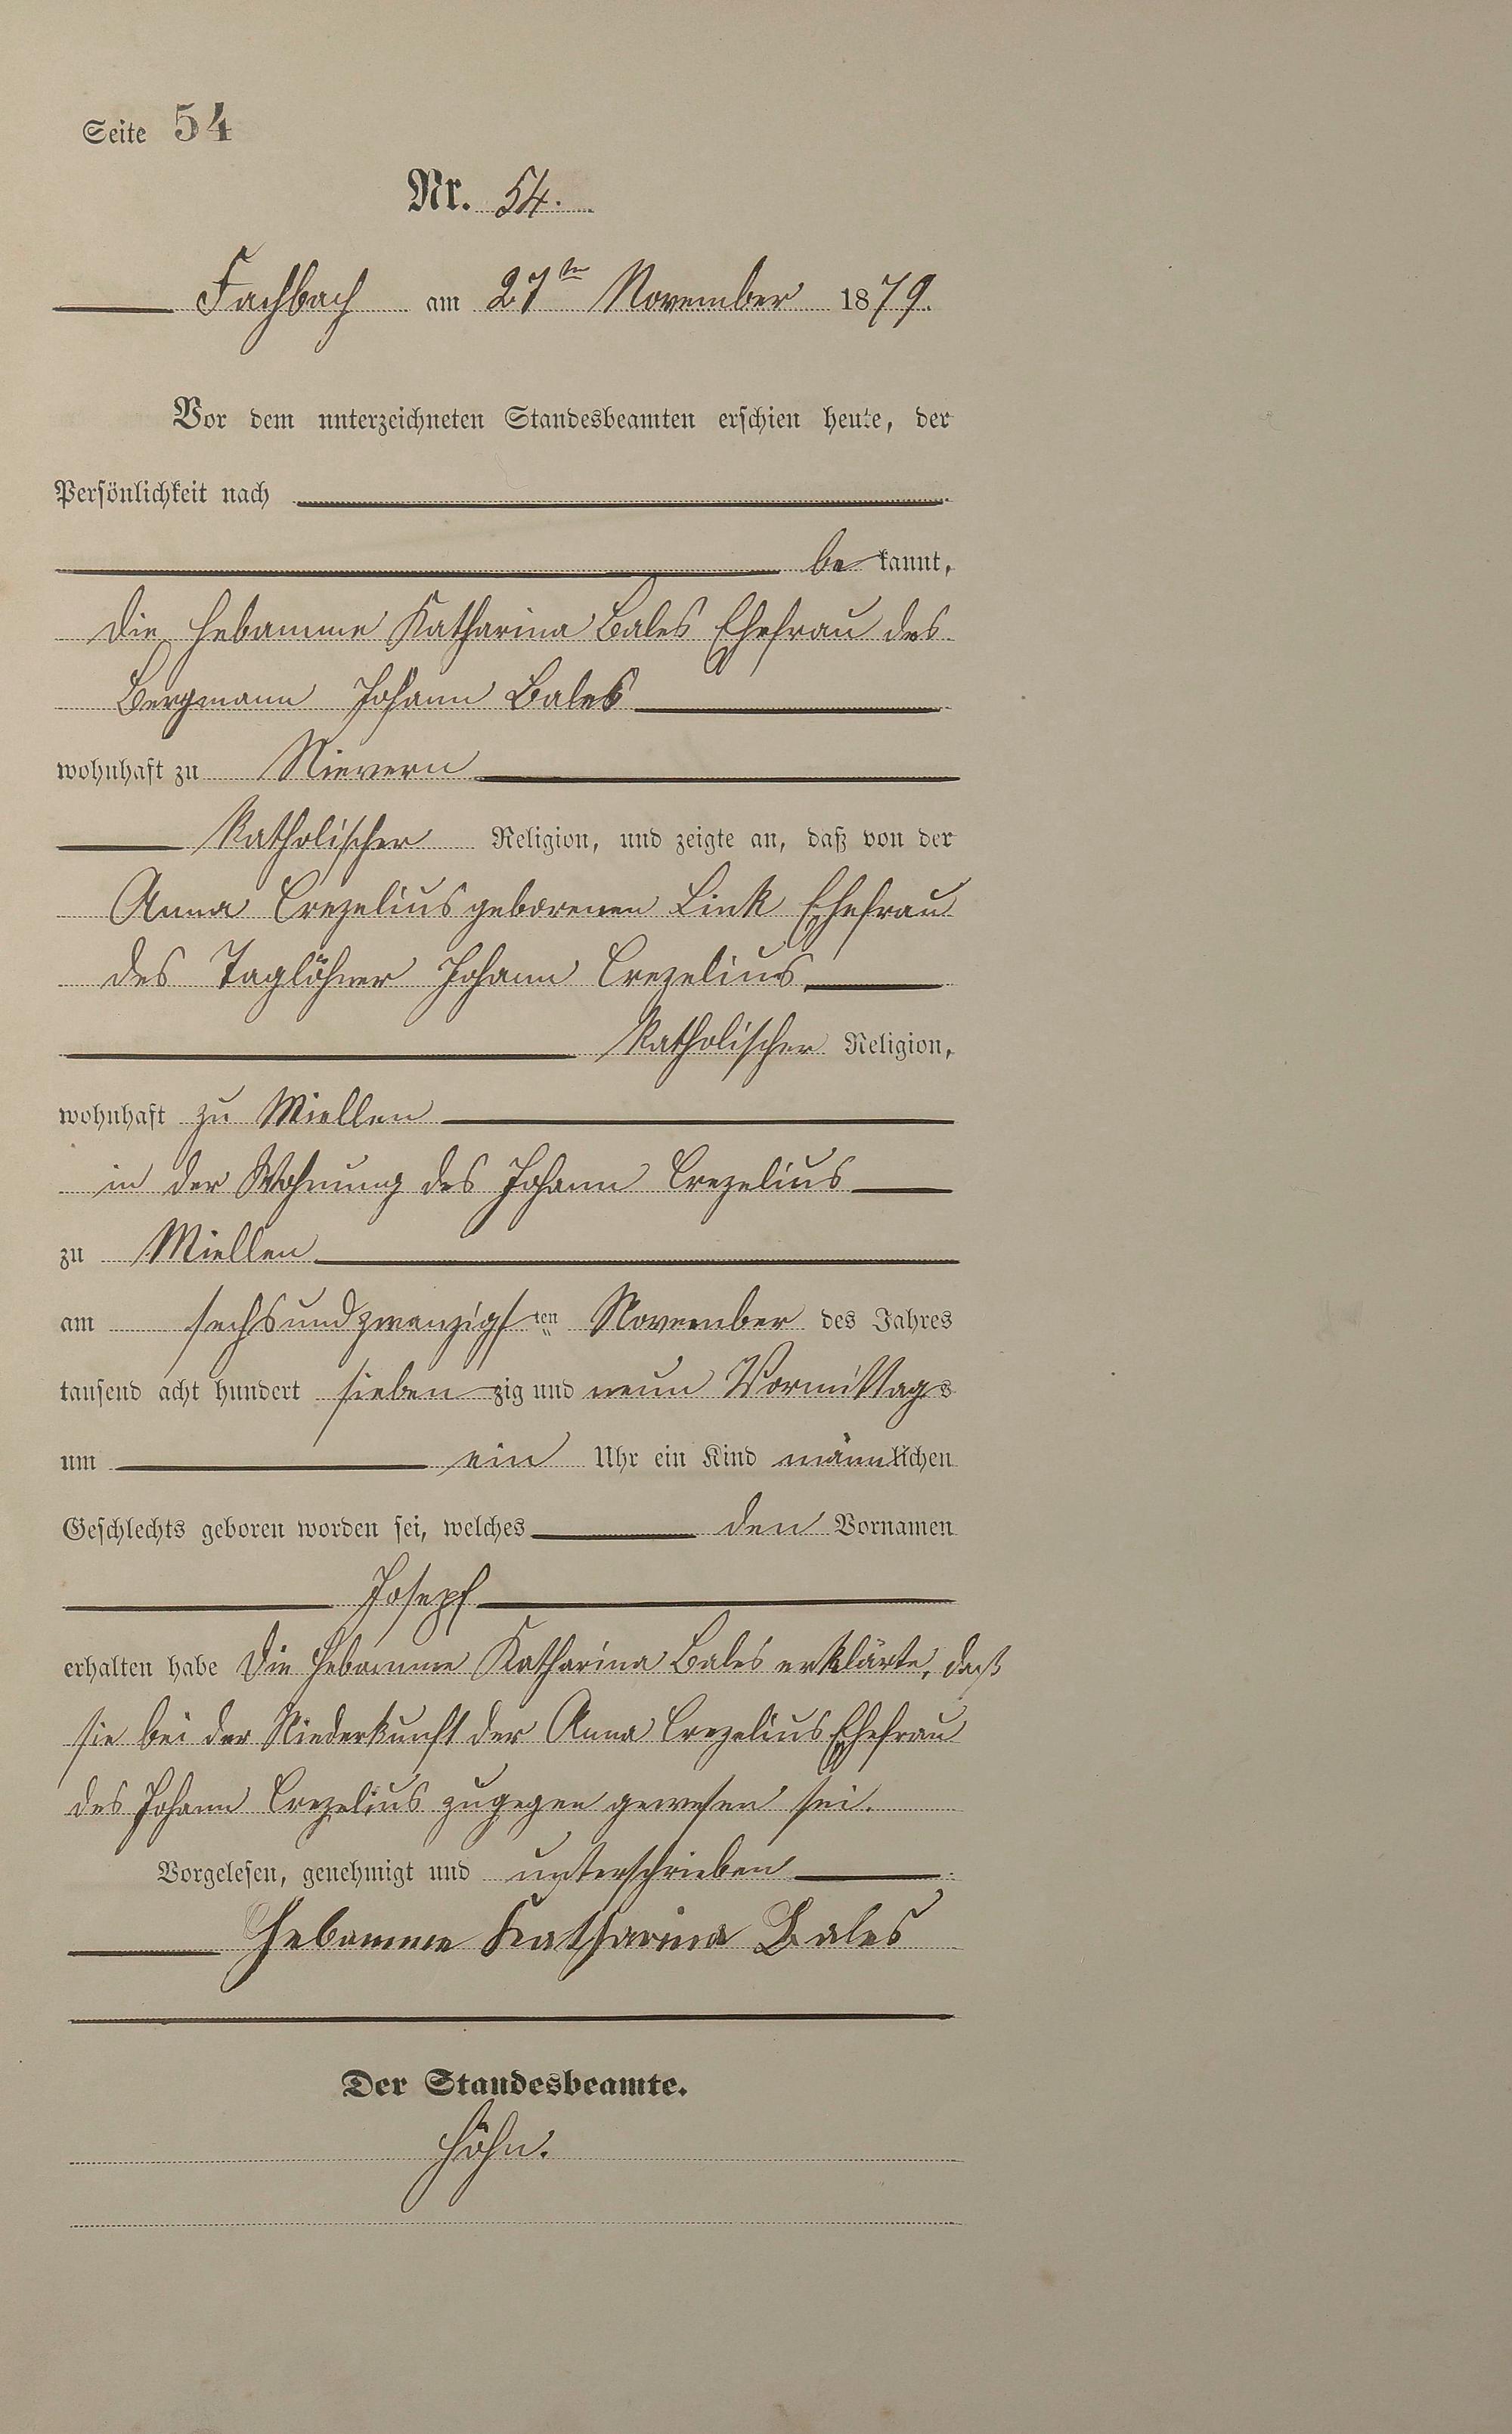 Seite 54
Nr. 54.
Fachbach am 27ten November 1879.
Vor dem unterzeichneten Standesbeamten erschien heute, der
Persönlichkeit nach
be kannt,
die Hebamme Katharina Bales Ehefrau des
Bergmann Johann Bales
wohnhaft zu Nievern
Katholischer Religion, und zeigte an, daß von der
Anna Crezelius geborenen Link Ehefrau
des Taglöhner Johann Crezelius
Katholischer Religion,
wohnhaft zu Miellen
in der Wohnung des Johann Crezelius
zu Miellen
am sechsundzwanzigsten November des Jahres
tausend acht hundert sieben zig und neun Vormittags
um ein Uhr ein Kind männlichen
Geschlechts geboren worden sei, welches den Vornamen
Josepf
erhalten habe Die Hebamme Katharina Bales erklärte, daß
sie bei der Niederkunft der Anna Crezelius Ehefrau
des Johann Crezelius zugegen gewesen sei.
Vorgelesen, genehmigt und unterschrieben
Hebamme Katharina Bales
Der Standesbeamte.
Höhn.